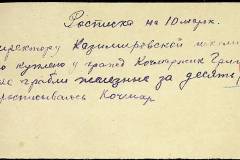 Расписка на 10 марк.
иректору Казимировской школы
о куплено у гражд Кочмарник Григ
на грабли железные за десять
расписываюсь Кочмар